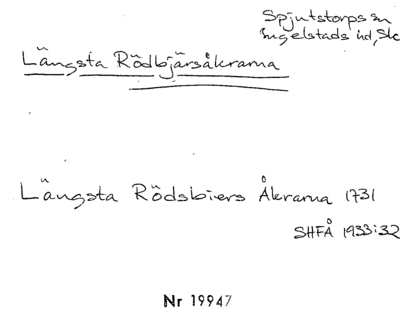 Spjutstorps sn
Ingelstads hd, Sk
Längsta Rödbjärsåkrarna
Längsta Rödsbiers Åkrarna 1731
SHFÅ 1933:32
Nr 19947